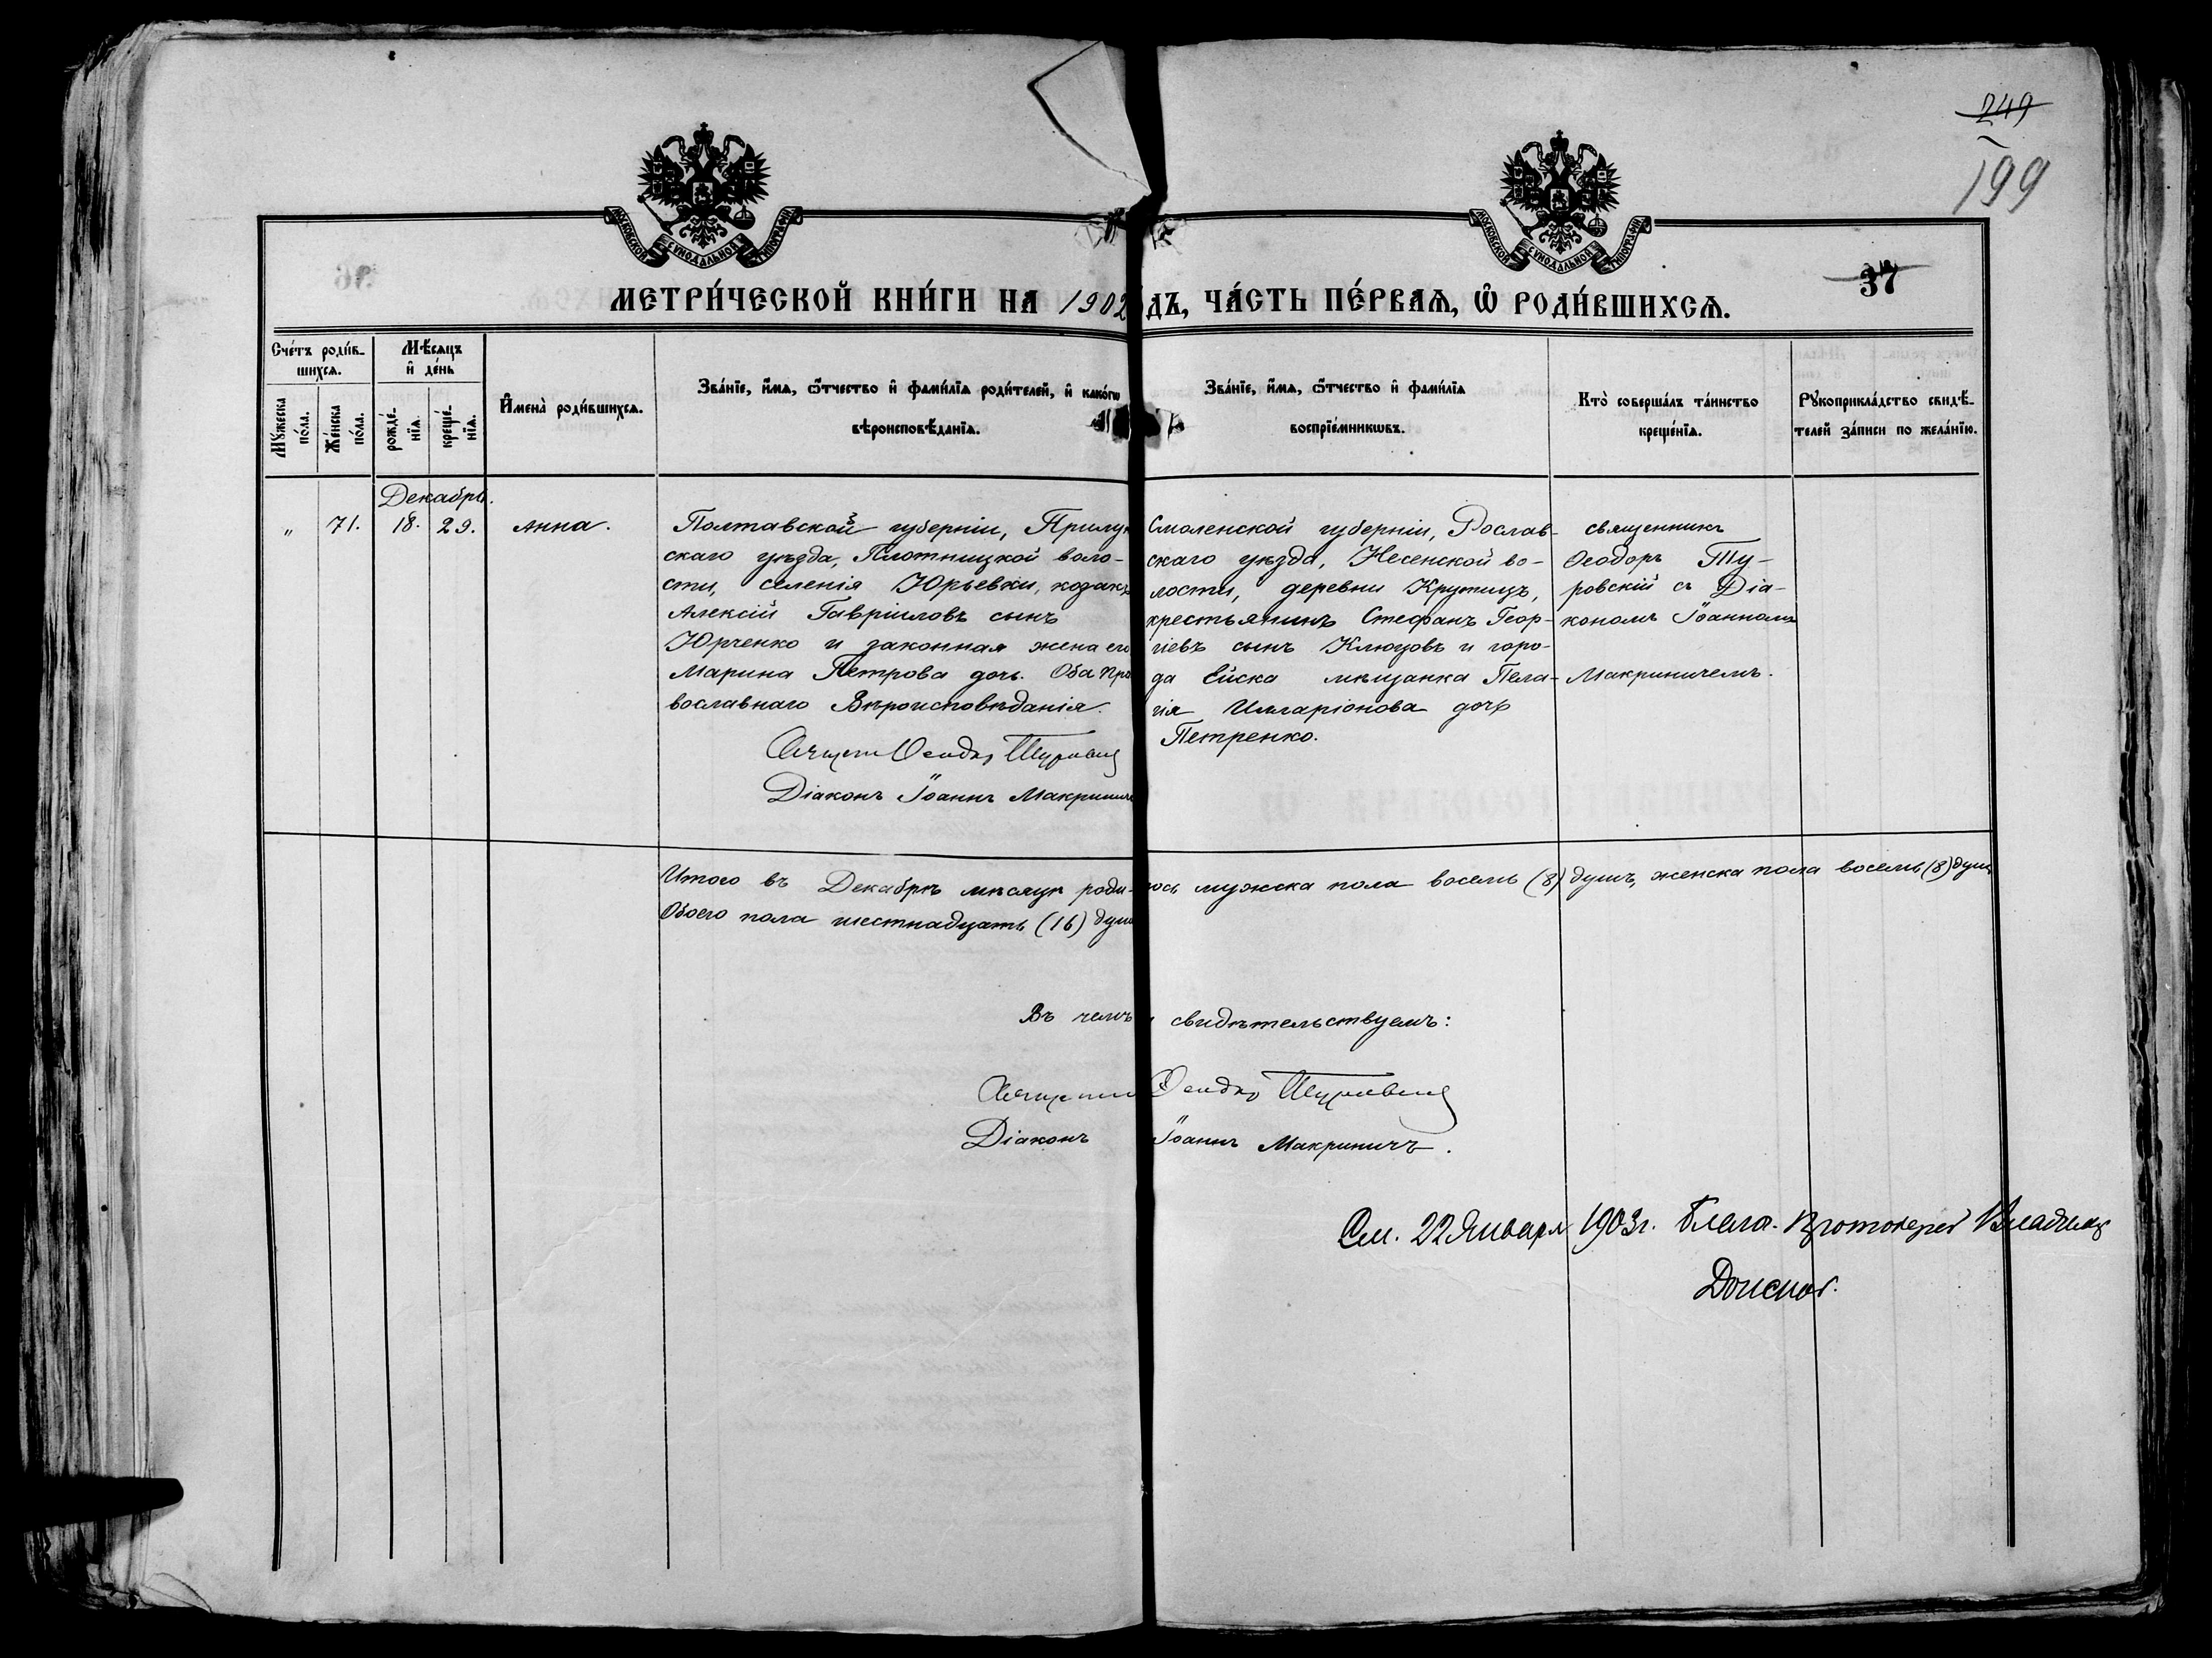 249
199
37
МОСКОВСКОЙ СѴНОДАЛЬНОЙ ТИПОГРАФІИ
МОСКОВСКОЙ СѴНОДАЛЬНОЙ ТИПОГРАФІИ
МЕТРИ́ЧЕСКОЙ КНИ́ГИ НА 1902
ДЪ, ЧА́СТЬ ПЕ́РВАѦ, Ѡ РОДИ́ВШИХСѦ.
Сче́тъ роди́в-
шихсѧ.
Мꙋ́жеска
по́ла.
Же́нска
по́ла.
Мѣ́сѧцъ
и҆ де́нь
рожде́-
нїѧ.
креще́-
нїѧ.
И҆мена̀ роди́вшихсѧ.
Зва́нїе, и҆́мѧ, ѻ҆́тчество и҆ фами́лїѧ роди́телей, и҆ како́гѡ
вѣроисповѣ́данїѧ.
Зва́нїе, и҆́мѧ, ѻ҆́тчество и҆ фами́лїѧ
воспрїе́мникѡвъ.
Кто̀ соверша́лъ та́инство
креще́нїѧ.
Рꙋкоприкла́дство свидѣ́-
телей за́писи по жела́нїю.
Декабрь.
„ 71. 18. 29. Анна.
Полтавской губерніи, Прилук
скаго уѣзда, Плотницкой воло-
сти, селенія Юрьевки, козакъ
Алексій Гавріиловъ сынъ
Юрченко и законная жена его
Марина Петрова дочь. Оба пра
вославнаго Вѣроисповѣданія.
Священникъ Ѳеодоръ Туровскій
Діаконъ Іоаннъ Макринич
Смоленской губерніи, Рослав-
скаго уѣзда, Несенской во-
лости, деревни Крутицъ,
крестьянинъ Стефанъ Геор-
гіевъ сынъ Клюцовъ и горо-
да Ейска мѣщанка Пела-
гія Илларіонова дочь
Петренко.
священникъ
Ѳеодоръ Ту-
ровскій съ Діа-
кономъ Іоанномъ
Макриничемъ.
Итого въ Декабрѣ мѣсяцѣ роди-лось мужска пола восемь (8) душъ, женска пола восемь (8) душъ
Обоего пола шестнадцать (16) душ
Въ чемъ и свидѣтельствуемъ:
Священникъ Ѳеодоръ Туровскій
Діаконъ Іоаннъ Макриничъ.
См. 22 Января 1903 г. Благо. Протоіерей
Донской.